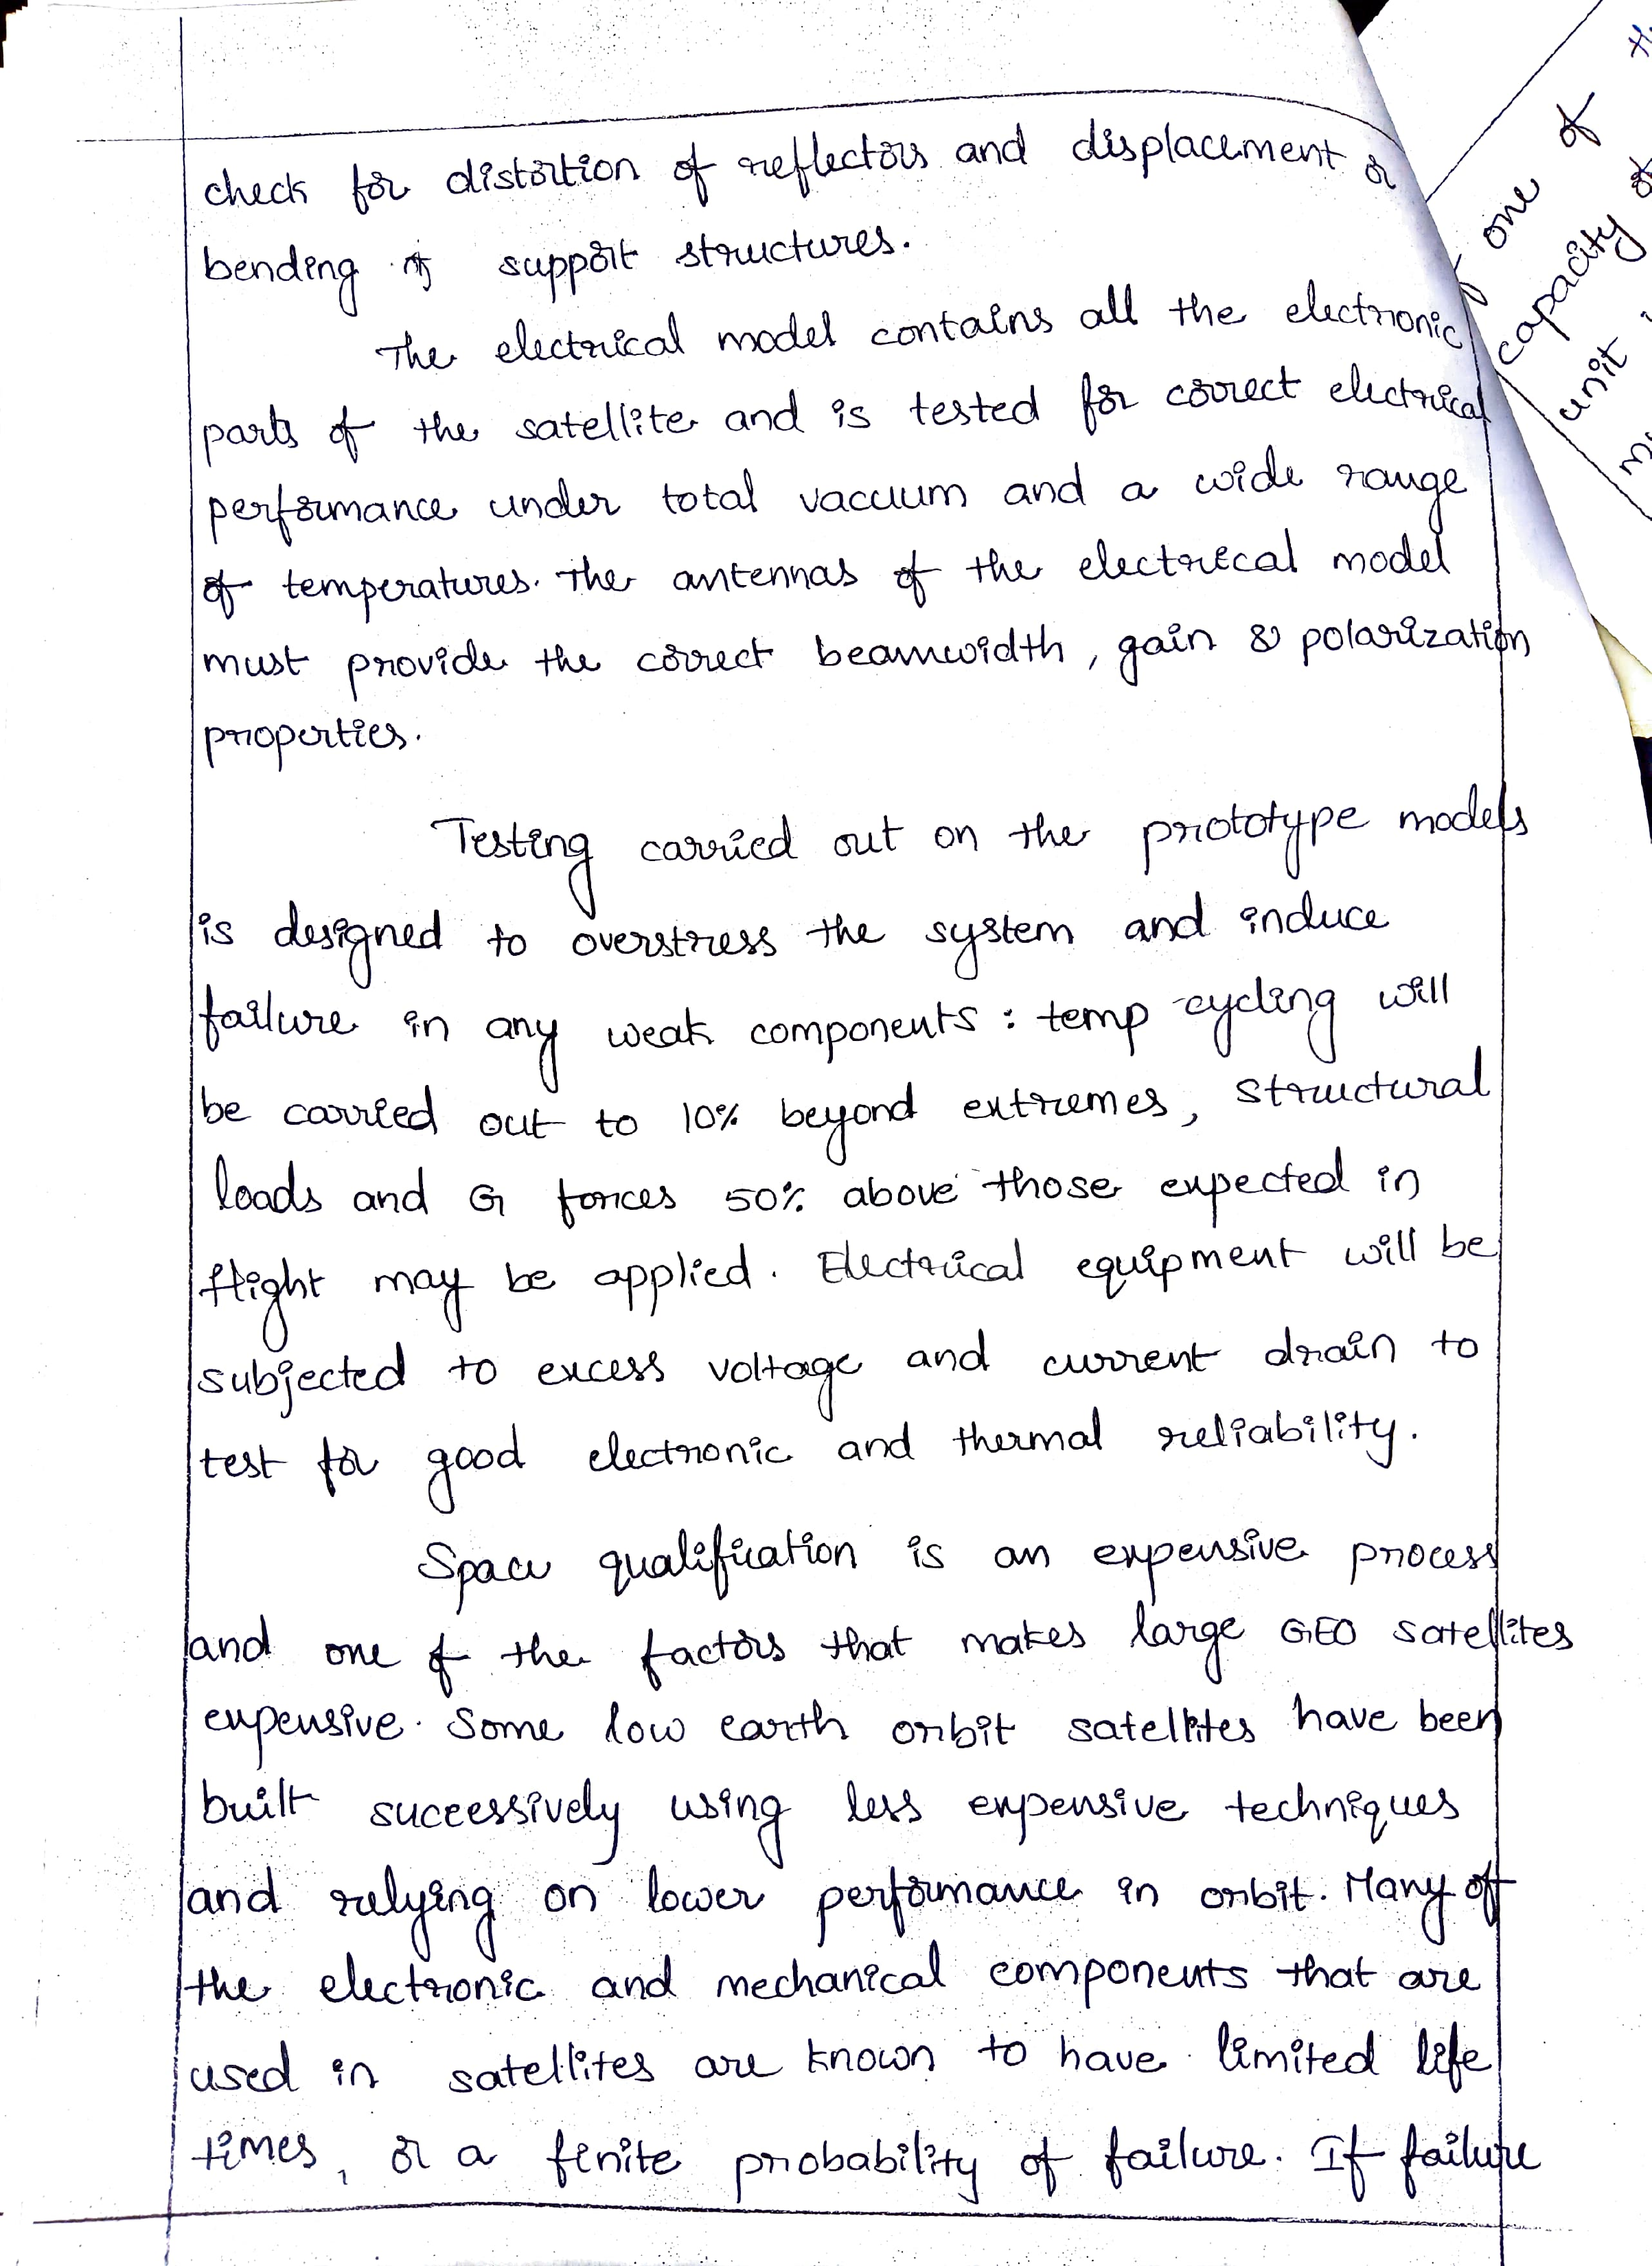 check for distortion of reflectors and displacement or
bending of support structures.
The electrical model contains all the electronic
parts of the satellite and is tested for correct electrical
performance under total vacuum and a wide range
of temperatures. The antennas of the electrical model
must provide the correct beamwidth, gain & polarization
properties.
Testing carried out on the prototype models
is designed to overstress the system and induce
failure in any weak components : temp cycling will
be carried out to 10% beyond extremes, structural
loads and G forces 50% above those expected in
flight may be applied. Electrical equipment will be
subjected to excess voltage and current drain to
test for good electronic and thermal reliability.
Space qualification is an expensive process
and one of the factors that makes large GEO satellites
expensive. Some low earth orbit satellites have been
built successively using less expensive techniques
and relying on lower performance in orbit. Many of
the electronic and mechanical components that are
used in satellites are known to have limited life
times, or a finite probability of failure. If failure
one of
capacity
unit